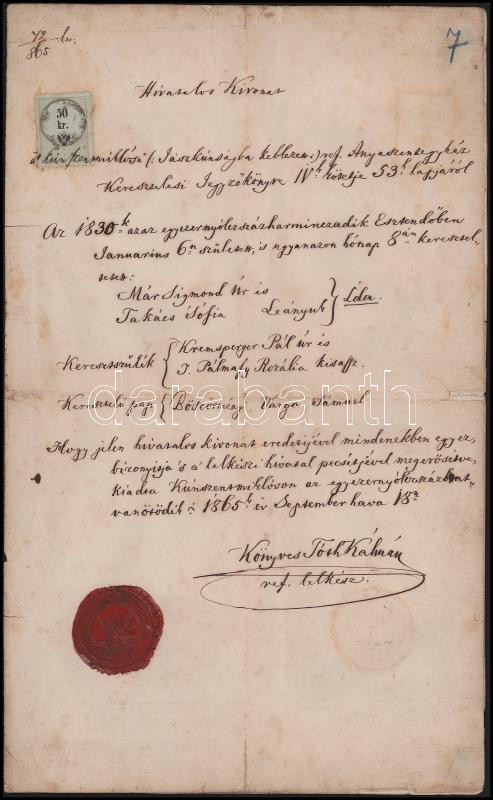 72 ln.
865
7
Hivatalos Kivonat
50
kr.
a' kún szent miklósi (: Jászkúnságba keblezett :) ref. Anyaszentegyház
Keresztelési Jegyzőkönyve IV. kötetje 53k lapjáról
Az 1830k azaz egyezernyolczszázharminczadik Esztendőben
Januarius 6n született, is ugyanazon hónap 8án keresztel-
tetett:
Már Sigmond Úr és
Takács Zsófia Leányuk Lida.
Keresztszülék Kremsperger Pál úr és
T. Pálmafy Rozália kisassz.
Keresztelő pap Böszörményi Varga Sámuel
Hogy jelen hivatalos kivonat eredetijével mindenekben egyez,
bizonyítja s a' lelkészi hivatal pecsétjével megerősítve,
kiadta Kúnszentmiklóson az egyezernyolczszázhat-
vanötödik 1865k év September hava 18n
Könyves Tóth Kálmán
ref. lelkész.
darabanth